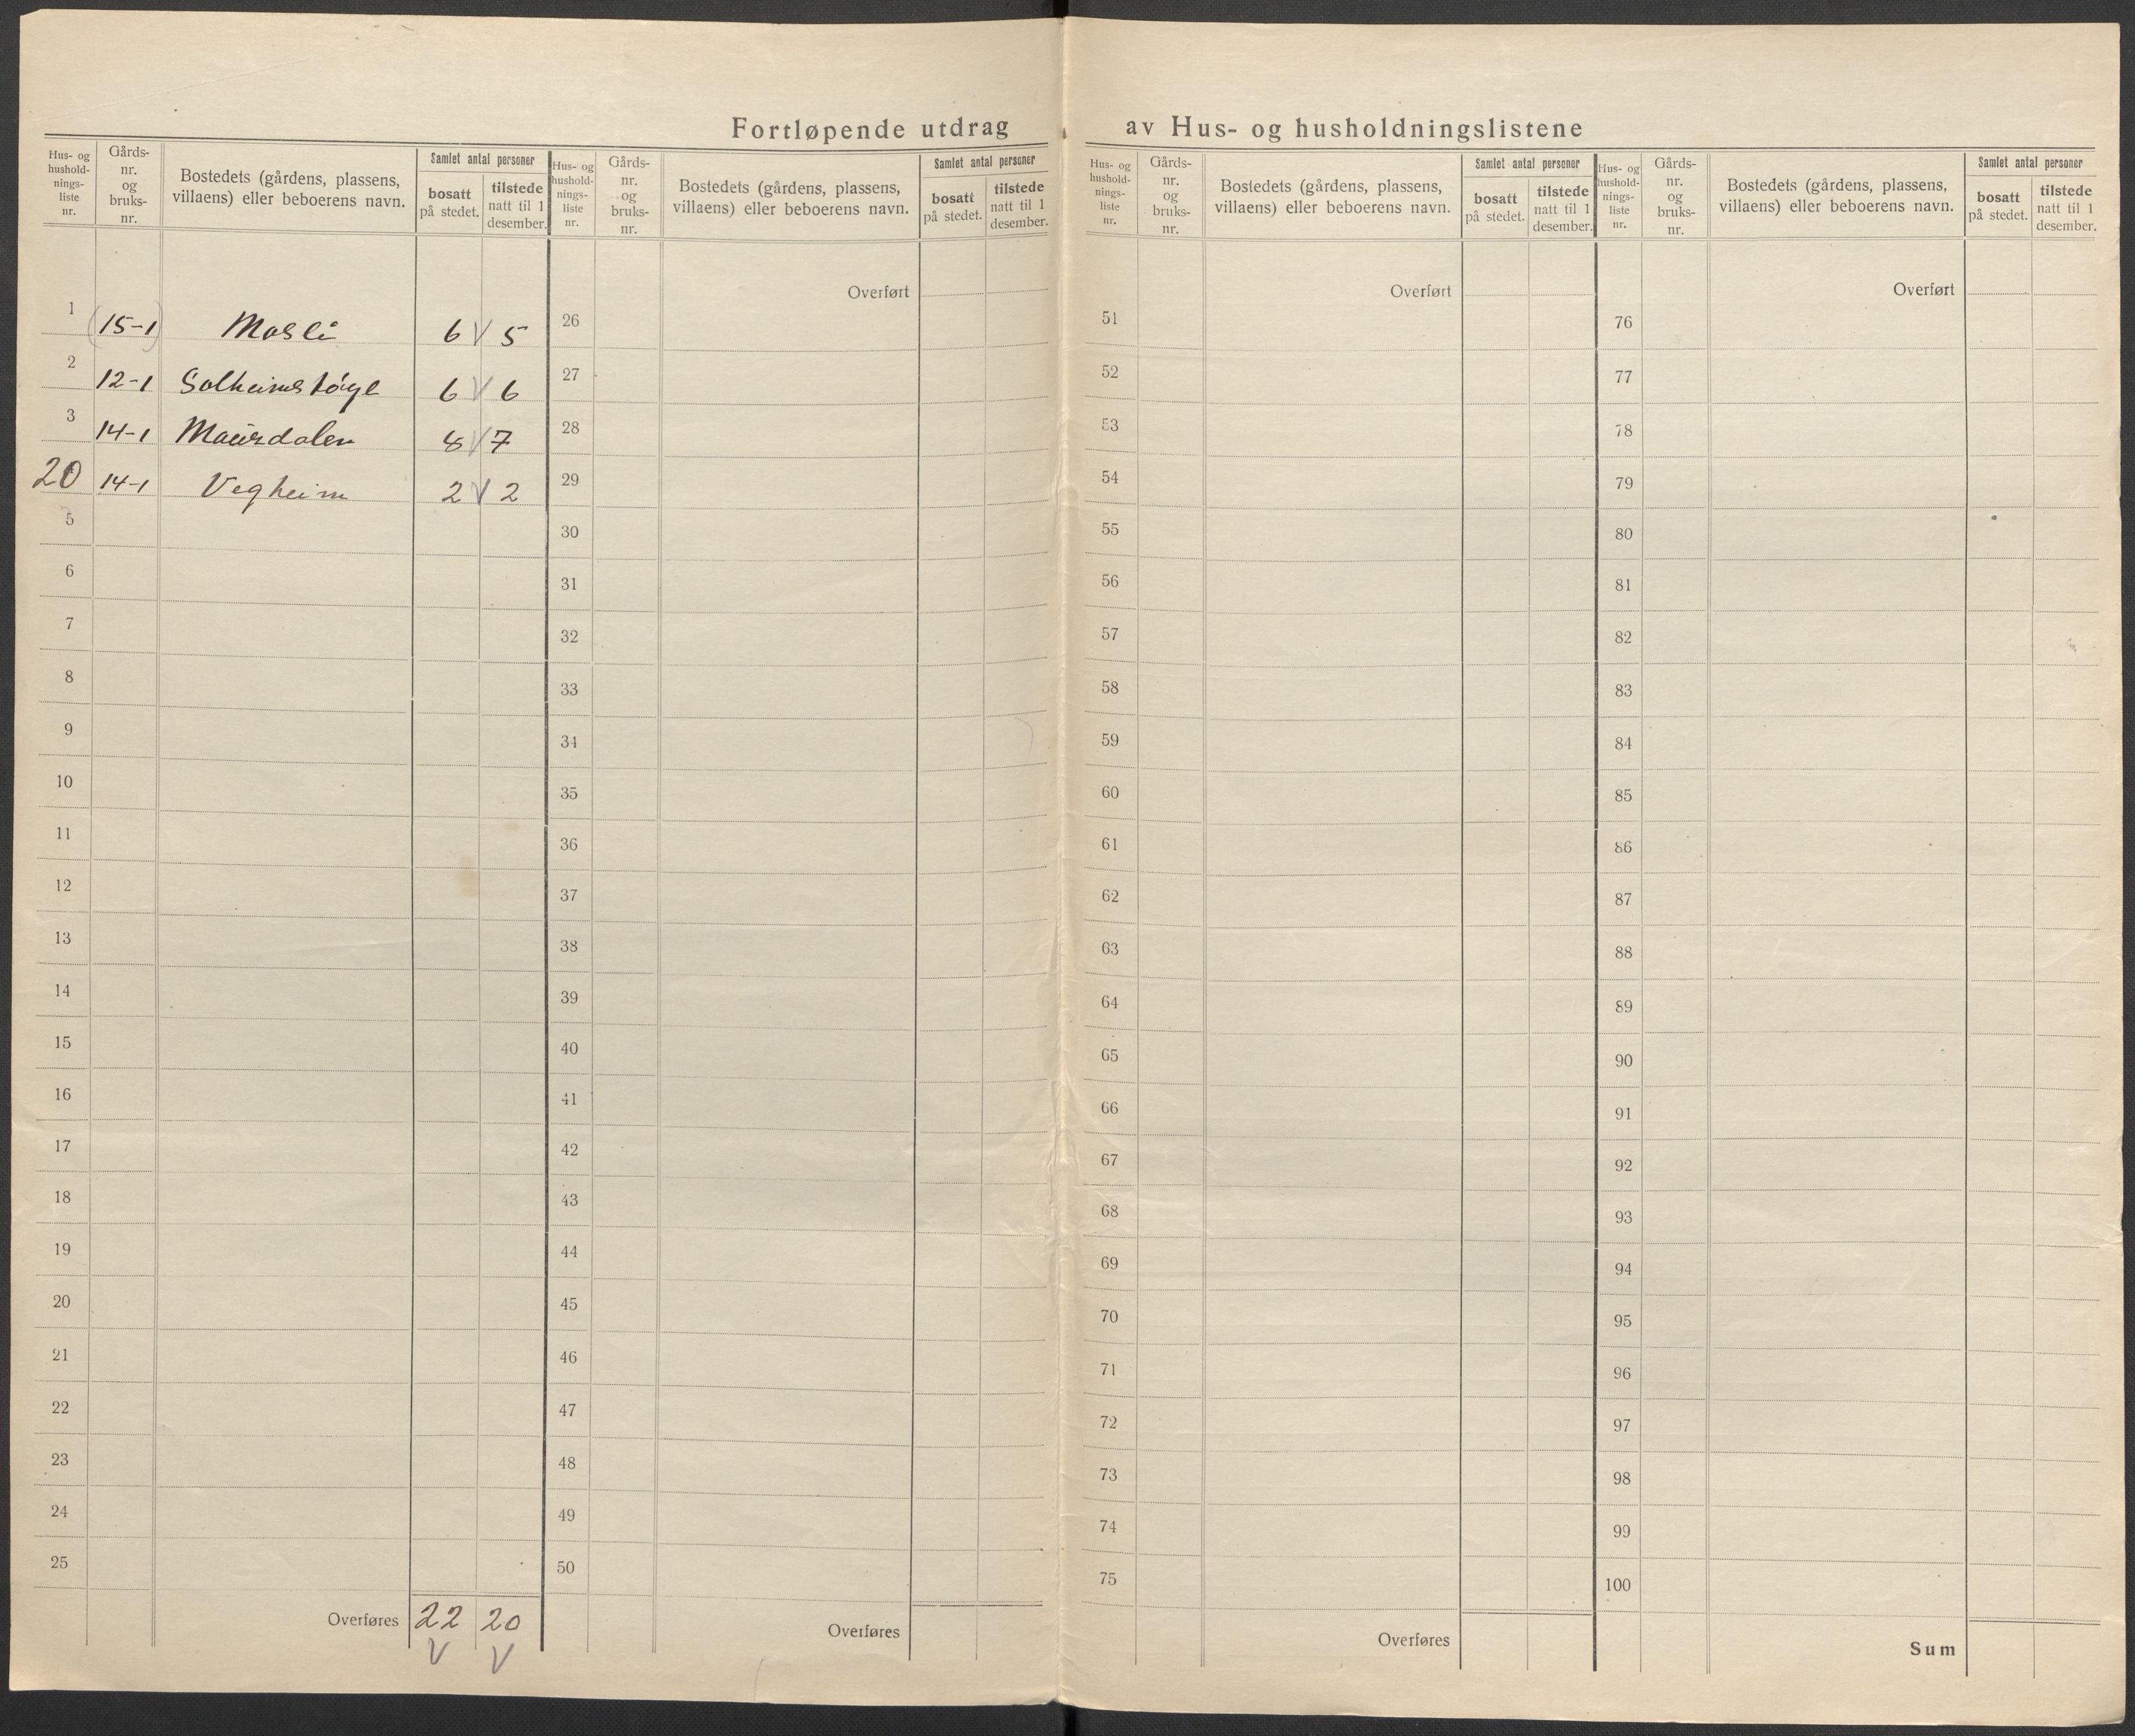 Fortløpende utdrag av Hus- og husholdningslistene
Hus- og hushold-nings-liste nr. Gårds-nr. og bruks-nr. Bostedets (gårdens, plassens, villaens) eller beboerens navn. Samlet antal personer bosatt på stedet. tilstede natt til 1 desember.
1 (15-1) Mosli 6 V 5
2 12-1 Solheimstøyl 6 V 6
3 14-1 Maurdalen 8 V 7
20 14-1 Vegheim 2 V 2
5
6
7
8
9
10
11
12
13
14
15
16
17
18
19
20
21
22
23
24
25
Overføres 22 20
V V
Hus- og hushold-nings-liste nr. Gårds-nr. og bruks-nr. Bostedets (gårdens, plassens, villaens) eller beboerens navn. Samlet antal personer bosatt på stedet. tilstede natt til 1 desember.
Overført
26
27
28
29
30
31
32
33
34
35
36
37
38
39
40
41
42
43
44
45
46
47
48
49
50
Overføres
Hus- og hushold-nings-liste nr. Gårds-nr. og bruks-nr. Bostedets (gårdens, plassens, villaens) eller beboerens navn. Samlet antal personer bosatt på stedet. tilstede natt til 1 desember.
Overført
51
52
53
54
55
56
57
58
59
60
61
62
63
64
65
66
67
68
69
70
71
72
73
74
75
Overføres
Hus- og hushold-nings-liste nr. Gårds-nr. og bruks-nr. Bostedets (gårdens, plassens, villaens) eller beboerens navn. Samlet antal personer bosatt på stedet. tilstede natt til 1 desember.
Overført
76
77
78
79
80
81
82
83
84
85
86
87
88
89
90
91
92
93
94
95
96
97
98
99
100
Sum